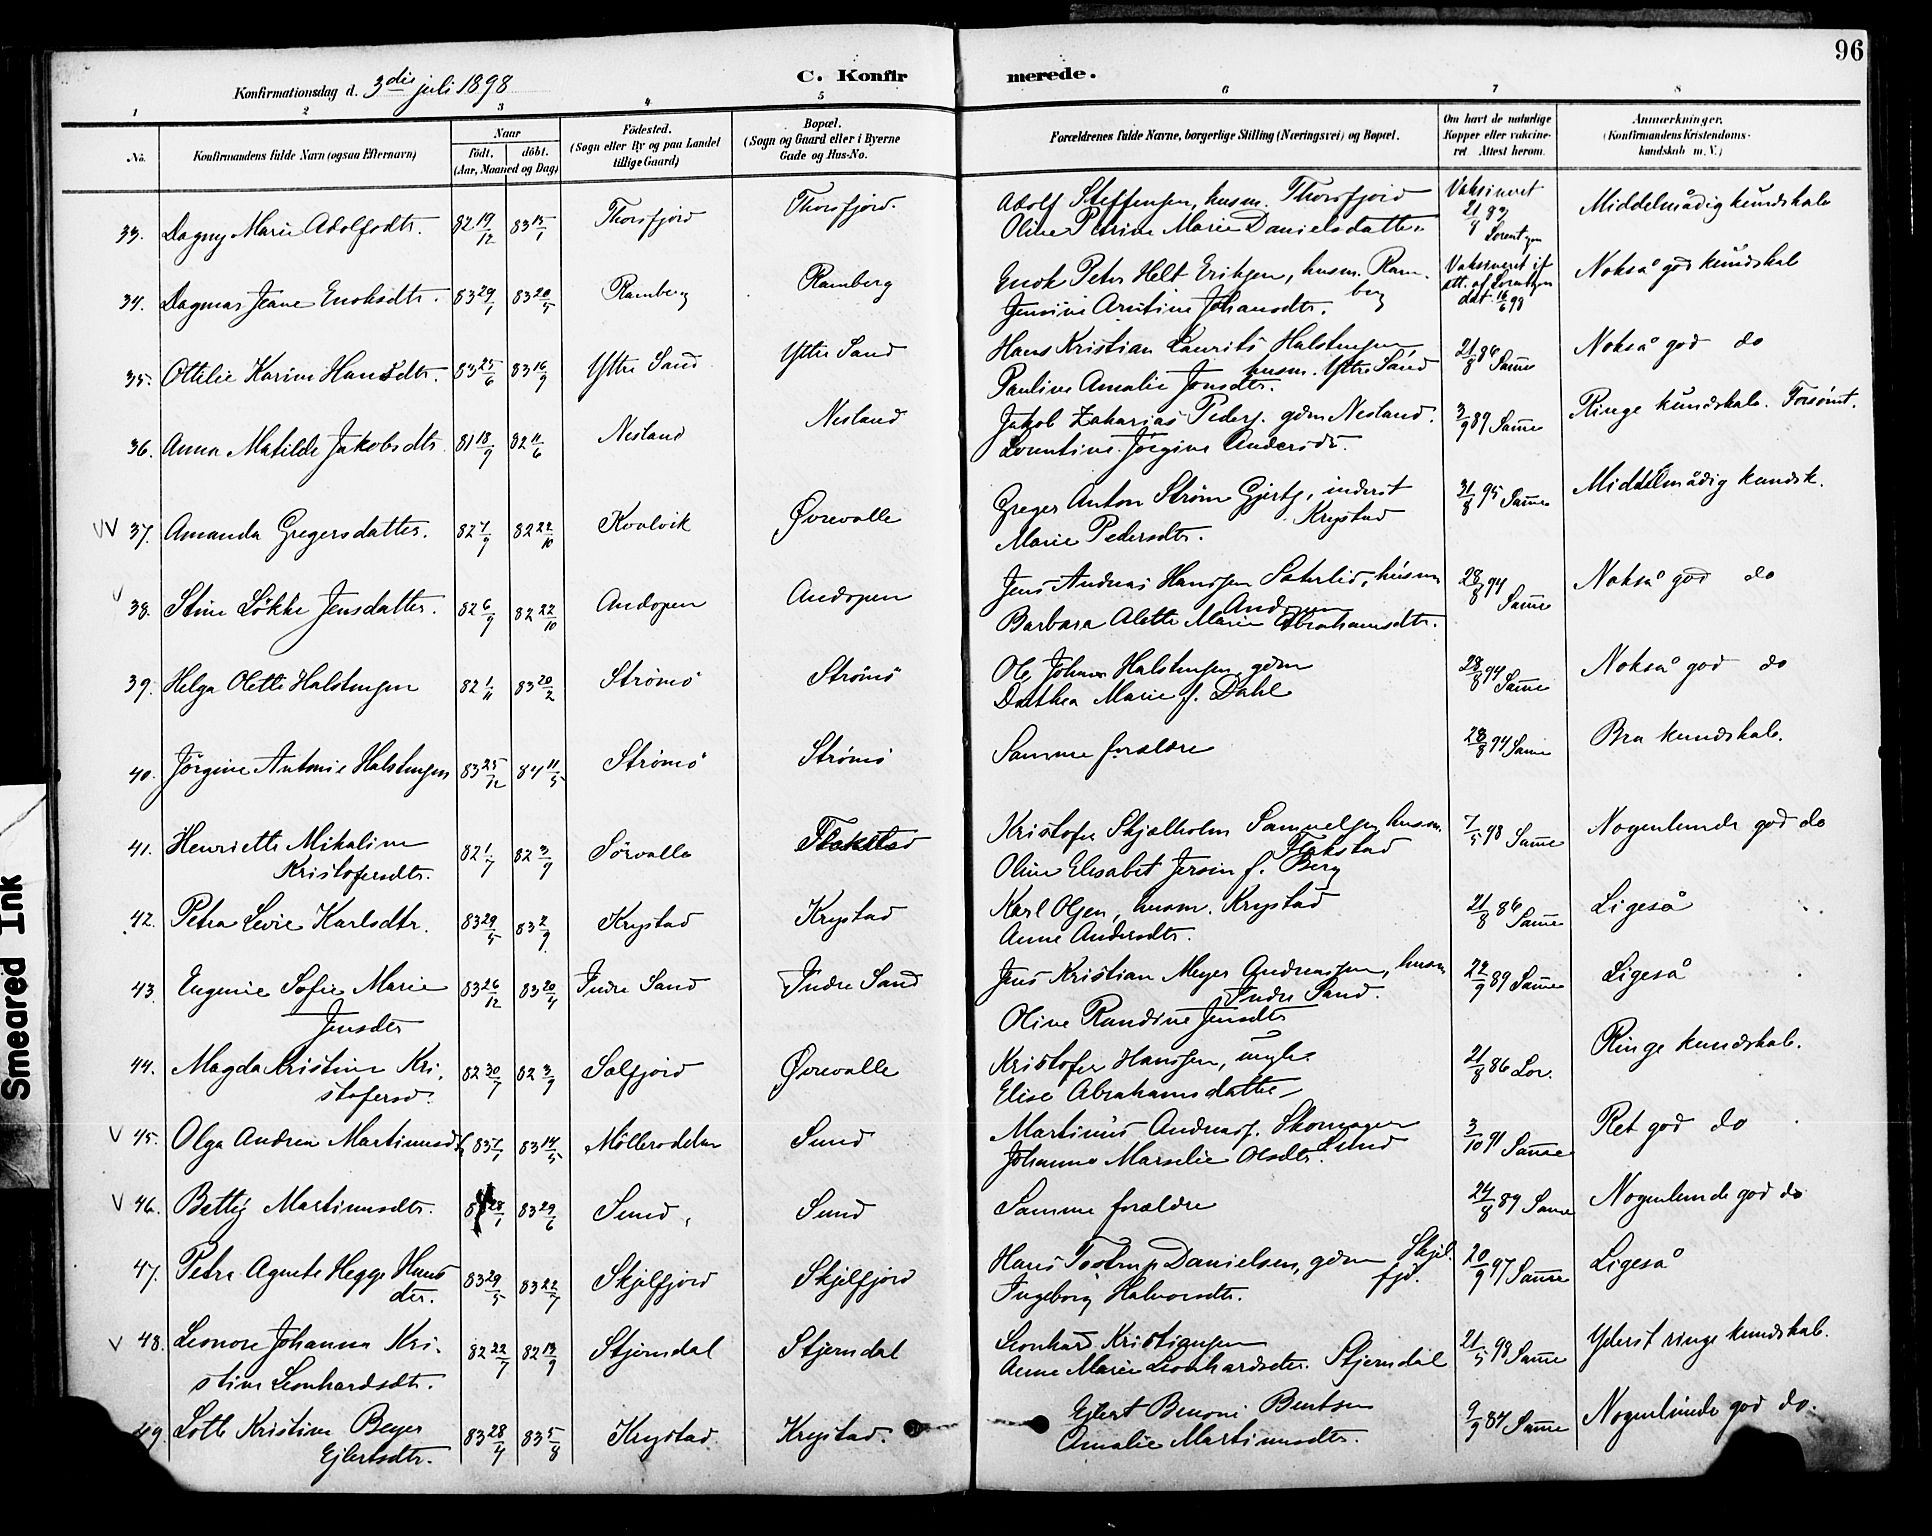 96
Konfirmationsdag d. 3die juli 1898
C. Konfirmerede.
1 2 3 4 5 6 7 8
No.
Konfirmandens fulde Navn (ogsaa Efternavn)
Naar
født, døbt.
(Aar, Maaned og Dag)
Fødested.
(Sogn eller By og paa Landet
tillige Gaard)
Bopæl.
(Sogn og Gaard eller i Byerne
Gade og Hus-No.
Forældrenes fulde Navne, borgerlige Stilling (Næringsvei) og Bopæl.
Om havt de naturlige
Kopper eller vakcine-
ret Attest herom.
Anmærkninger.
(Konfirmandens Kristendoms-
kundskab m. V.)
33. Dagny Marie Adolfsdtr. 82 19/12 83 15/1 Thorsfjord Thorsfjord. Adolf Steffensen, husm. Thorsfjord Vaksineret 21/9 83 Lorentzen Middelmådig kundskab
Oline Petrine Marie Danielsdatter
34. Dagmar Jeane Enoksdtr. 83 29/1 83 20/5 Ramberg Ramberg Enok Peter Helt Eriksen, husm. Ramberg Vaksineret if. att. af Lorentzen dat. 16/6 98 Nokså god kundskab
Jensine Arntine Johansdtr.
35. Ottilie Karine Hansdtr. 83 25/6 83 16/9 Yttre Sand Yttre Sand Hans Kristian Laurits Halstensen husm. Yttre Sand 21/8 86 Samme Nokså god do
Pauline Amalie Jonsdtr.
36. Anna Matilde Jakobsdtr. 81 18/9 82 11/6 Nesland Nesland Jakob Zakarias Peders. gdm Nesland. 3/9 89 Samme Ringe kundskab. Forsømt.
Lorentine Jørgine Andersdtr.
37. Amanda Gregersdatter. 82 7/9 82 22/10 Kvalvik Øvrevolle Greger Anton Strøm Gjerts., inderst Krystad 31/8 95 Samme Middelmådig kundsk.
Marie Pedersdtr.
38. Stine Løkke Jensdatter. 82 6/9 82 22/10 Andopen Andopen Jens Andreas Hanssen Sæterlid, husm Andopen 28/8 94 Samme Nokså god do
Barbara Alette Marie Abrahamsdtr.
39. Helga Olette Halstensen 82 1/11 83 20/2 Strømø Strømø Ole Johan Halstensen, gdm 28/8 94 Samme Nokså god do
Dorthea Marie f. Dahl
40. Jørgine Antonie Halstensen 83 25/12 84 11/5 Strømø Strømø Samme forældre 28/8 94 Samme Bra kundskab.
41. Henriette Mikaline 82 1/7 82 3/9 Sørvalle Flakstad Kristofer Skjælholm Samuelsen, husm. Flakstad 7/5 98 Samme Nogenlunde god do
Kristofersdtr. Oline Elisabet Jersin f. Berg
42. Petra Levie Karlsdtr. 83 29/5 83 2/9 Krystad Krystad Karl Olsen, husm. Krystad 21/8 86 Samme Ligeså
Anne Andersdtr.
43. Eugenie Sofie Marie 83 26/12 83 20/4 Indre Sand Indre Sand Jens Kristian Meyer Andreassen, husm Indre Sand. 22/9 89 Samme Ligeså
Jensdtr Oline Rundine Jensdtr
44. Magda Kristine Kri- 82 30/7 82 3/9 Solfjord Øvrevalle Kristofer Hanssen, ungk. 21/8 86 Lor. Ringe kundskab.
stofersd. Elise Abrahamsdatter
45. Olga Andrea Martinusdtr. 83 1/1 83 14/5 Møllerodden Sund Martinus Andreas. Skomager Sund 3/10 91 Samme Ret god do
Johanna Marselie Olsdtr.
46. Bettij Martinusdtr. 28/1 83 29/6 Sund Sund Samme forældre 24/8 89 Samme Nogenlunde god do
47. Petra Agnete Hegge Hans 83 29/5 83 22/7 Skjelfjord Skjelfjord Hans Tostrup Danielsen, gdm Skjelfjd. 20/9 97 Samme Ligeså
dtr. Ingeborg Halvorsdtr.
48. Leonore Johanna Kri- 82 22/7 82 13/9 Stjerndal Stjerndal Leonhard Kristiansen 21/5 98 Samme Yderst ringe kundskab.
stine Leonhardsdtr. Anne Marie Leonhardsdtr. Stjerndal
49. Lotte Kristine Beyer 83 28/4 83 5/8 Krystad Krystad. Ejlert Benoni Bentsen 9/9 84 Samme Nogenlunde god do.
Ejlertsdtr. Amalie Martinusdtr.
Smeared Ink